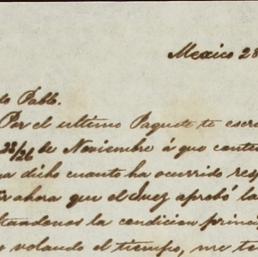 Mexico 28
do Pablo.
Por el ultimo Paquete te escri
23/26 de Noviembre á que conte
ya dicho cuanto ha ocurrido resp
ahora que el Juez aprobó la
tandonos la condicion princi
volando el tiempo, me te